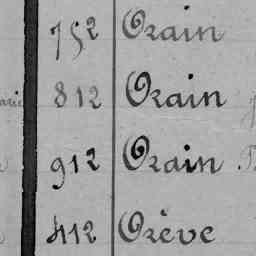 752 Orain
812 Orain
912 Orain
412 Orève